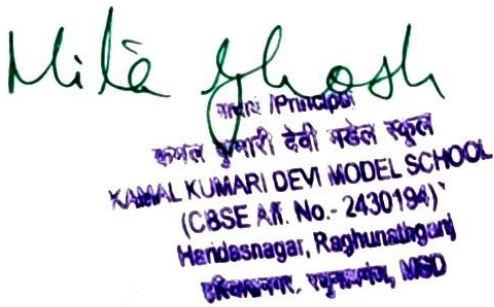 Mita Ghosh
प्राचार्य /Principal
कमल कुमारी देवी मडेल स्कूल
KAMAL KUMARI DEVI MODEL SCHOOL
(CBSE Aff. No.- 2430194)
Haridasnagar, Raghunathganj
हरिदासनगर, रघुनाथगंज, MSD